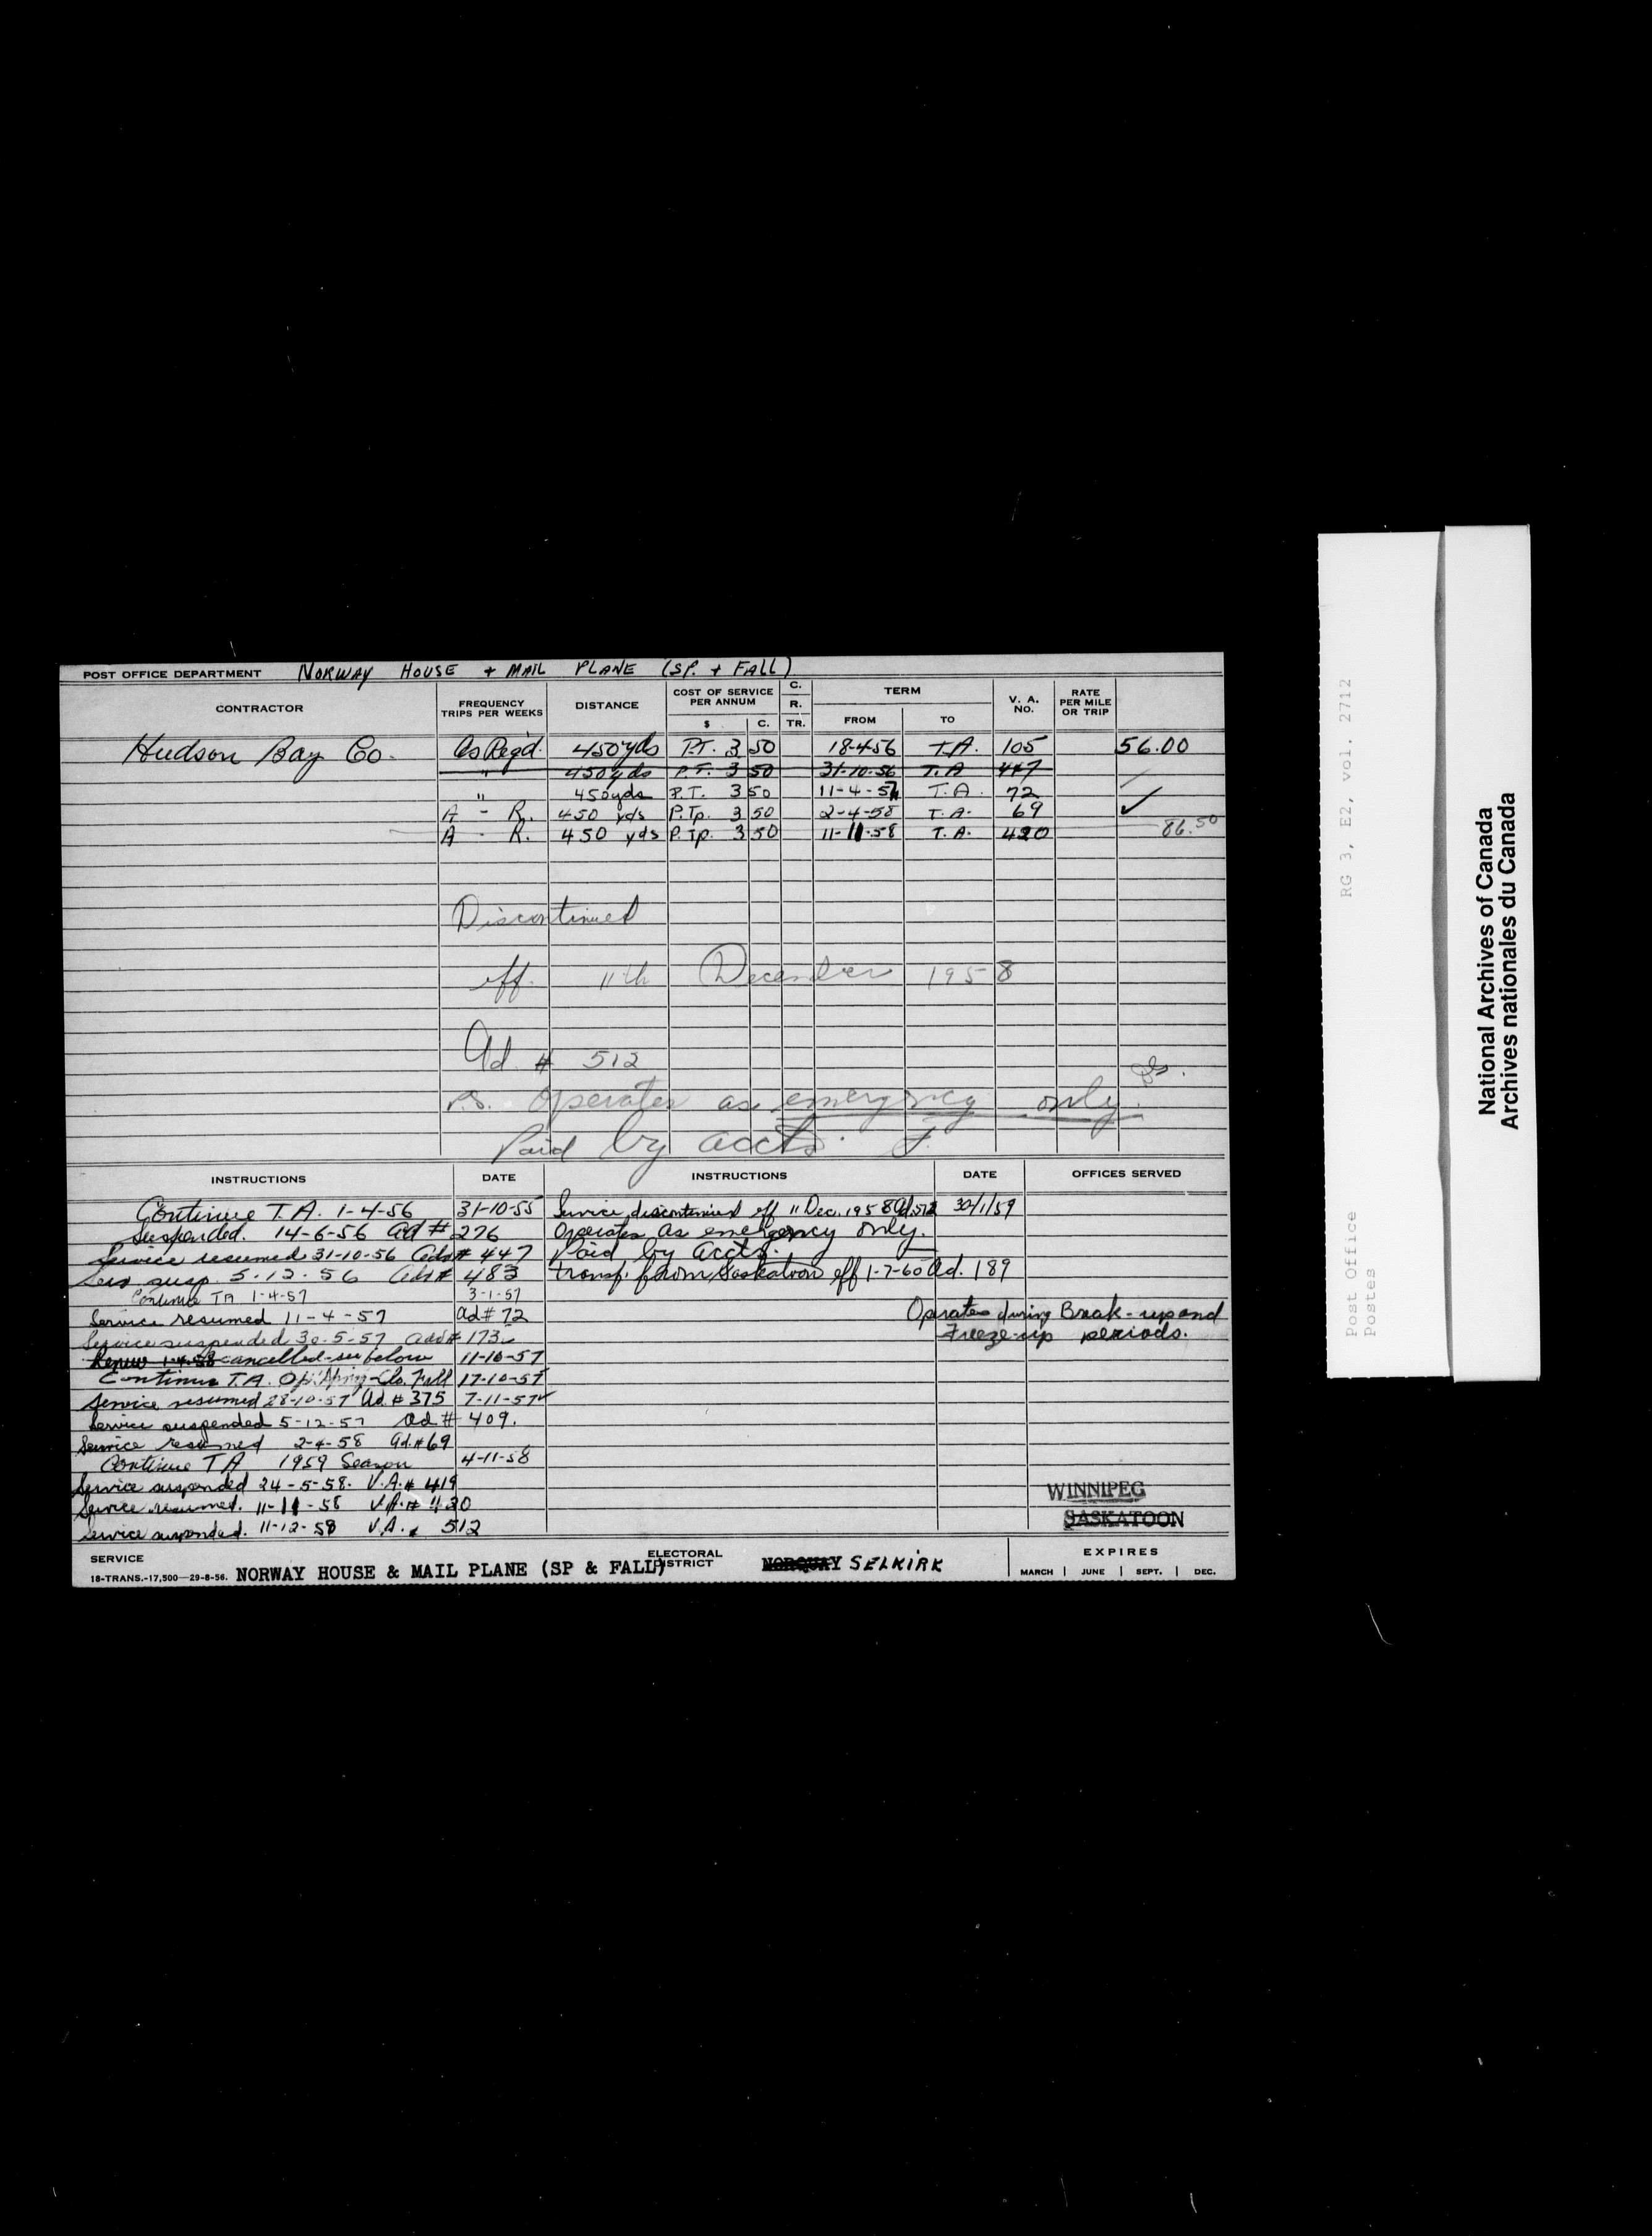 POST OFFICE DEPARTMENT NORWAY HOUSE + MAIL PLANE (SP. + FALL)
CONTRACTOR FREQUENCY TRIPS PER WEEKS DISTANCE COST OF SERVICE PER ANNUM $ C. C. R. TR. TERM FROM TO V. A. NO. RATE PER MILE OR TRIP
Hudson Bay Co. As Req'd. 450 yds P.T. 3 50 18-4-56 T.A. 105 56.00
" 450 yds P.T. 3 50 31-10-56 T.A 447
" 450 yds P.T. 3 50 11-4-57 T.A. 72
A - R. 450 yds P.Tp. 3 50 2-4-58 T.A. 69 ✓
A - R. 450 yds P.Tp. 3 50 11-11-58 T.A. 420 86.50
Discontinued
eff. 11th December 1958
Ad. # 512
P.S. Operates as emergency only.
Paid by accts. F.
INSTRUCTIONS DATE INSTRUCTIONS DATE OFFICES SERVED
Continue T.A. 1-4-56 31-10-55 Service discontinued eff 11 Dec. 1958 Ad. 512 30/1/59
Suspended. 14-6-56 Ad # 276 Operates as emergency only.
Service resumed 31-10-56 Ad # 447 Paid by Accts.
Serv susp. 5-12-56 Ad # 483 transf. from Saskatoon eff 1-7-60 Ad. 189
Continue TA 1-4-57 3-1-57
Service resumed 11-4-57 Ad # 72 Operates during Break-up and
Service suspended 30-5-57 Add # 173 Freeze-up periods.
Renew 1-4-58 cancelled - see below 11-10-57
Continue T.A. Op. Spring - Cls. Fall 17-10-57
Service resumed 28-10-57 Ad. # 375 7-11-57
Service suspended 5-12-57 Ad # 409.
Service resumed 2-4-58 Ad. # 69
Continue TA 1959 Season 4-11-58
Service suspended 24-5-58. V.A. # 419
Service resumed. 11-11-58 V.A. # 420
Service suspended. 11-12-58 V.A. 512
WINNIPEG
SASKATOON
SERVICE NORWAY HOUSE & MAIL PLANE (SP & FALL) ELECTORAL DISTRICT NORQUAY SELKIRK EXPIRES
18-TRANS.-17,500—29-8-56. MARCH | JUNE | SEPT. | DEC.
RG 3, E2, vol. 2712
Post Office
Postes
National Archives of Canada
Archives nationales du Canada